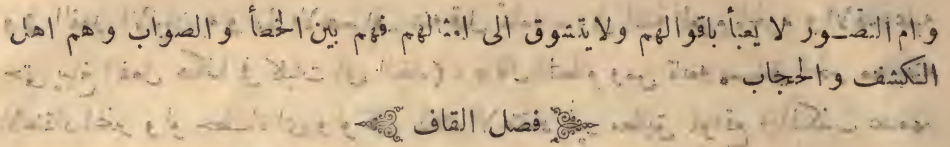 و ام التصور لا يعبأ باقوالهم ولا يتشوق الى امثالهم فهم بين الخطأ و الصواب و هم اهل
التكشف و الحجاب •
فصل القاف